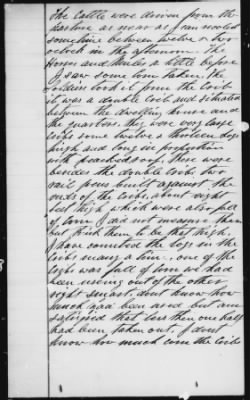 The Cattle were driven from the
pasture as near as I can recollect
sometime between twelve & two
oclock in the afternoon. The
Horses and Mules a little before
I saw some corn taken, the
Soldiers took it from the Crib
it was a double Crib and situated
between the dwelling house and
the quarters. they were very large
cribs some twelve or thirteen logs
high and long in proportion
with peaked roof. there were
besides the double Crib two
rail pens built against the
ends of the Cribs, about eight
feet high which were also full
of corn I did not measure them
but think them to be that high.
I have counted the logs in the
Cribs many a time. one of the
Cribs was full of corn we had
been using out of the other
right smart, dont know how
much had been used but am
satisfied that less then one half
had been taken out, I dont
know how much corn the Cribs